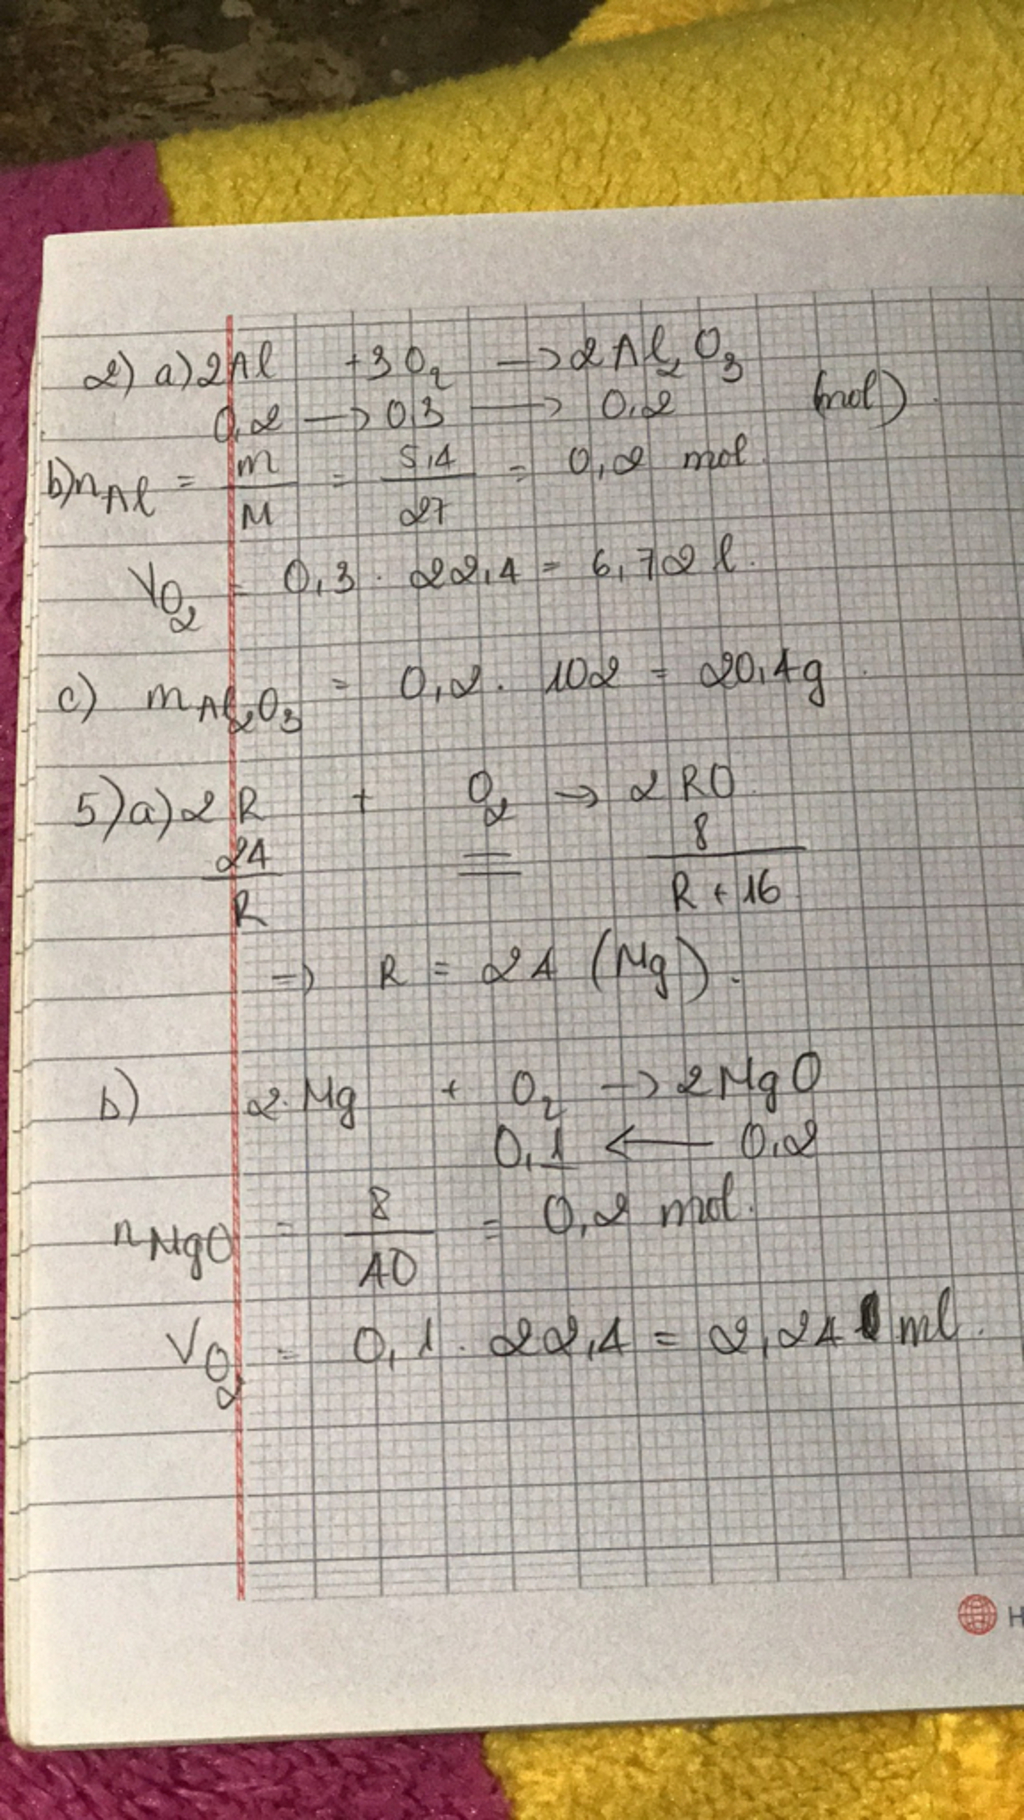 2) a) 2Al + 3O₂ → 2Al₂O₃
0,2 → 0,3 → 0,2 (mol).
b) nAl = m/M = 5,4/27 = 0,2 mol
VO₂ = 0,3 . 22,4 = 6,72 l.
c) mAl₂O₃ = 0,2 . 102 = 20,4g.
5) a) 2R + O₂ → 2RO
24/R = 8/R + 16
=> R = 24 (Mg).
b) 2.Mg + O₂ → 2MgO
0,1 ← 0,2
nMgO = 8/40 = 0,2 mol.
VO₂ = 0,1 . 22,4 = 2,24 ml.
H